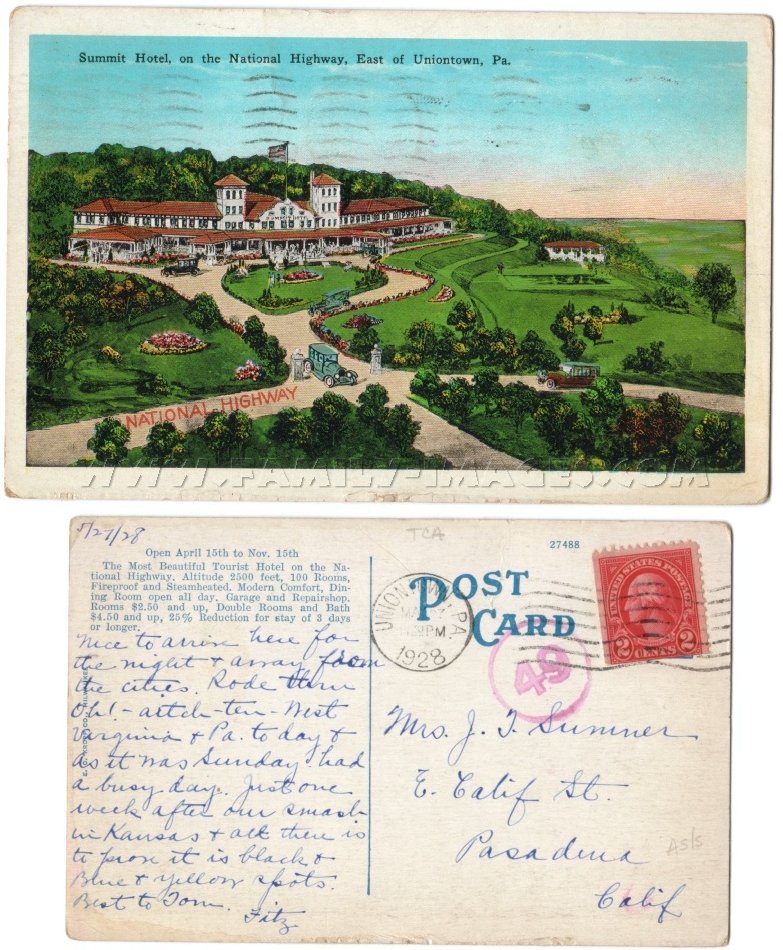 Summit Hotel, on the National Highway, East of Uniontown, Pa.
SUMMIT HOTEL
NATIONAL HIGHWAY
WWW.FAMILY-IMAGES.COM
5/27/28
TCA
Open April 15th to Nov. 15th
The Most Beautiful Tourist Hotel on the Na-
tional Highway. Altitude 2500 feet, 100 Rooms,
Fireproof and Steamheated. Modern Comfort, Din-
ing Room open all day. Garage and Repairshop.
Rooms $2.50 and up, Double Rooms and Bath
$4.50 and up, 25% Reduction for stay of 3 days
or longer.
Nice to arrive here for
the night & away from
the cities. Rode thru
Oh! - - ten - West
Virginia & Pa. to day &
as it was Sunday had
a busy day. Just one
week after our smash
in Kansas & all there is
to prove it is black &
Blue & yellow spots.
Best to Tom.
Fitz
27488
POST
CARD
UNIONTOWN, PA
PM
1928
49
UNITED STATES POSTAGE
2 CENTS 2
Mrs. J. T. Sumner
E. Calif St.
Pasadena
Calif